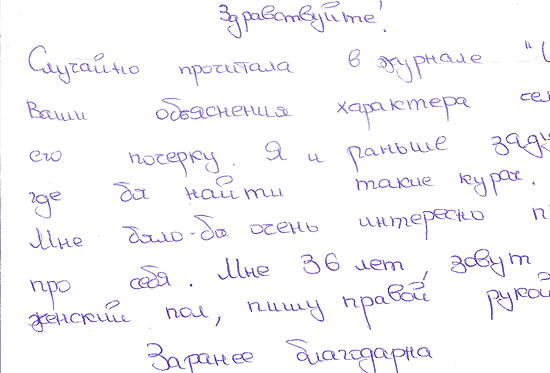 Здравствуйте!
Случайно прочитала в журнале "
Ваши объяснения характера
его почерку. Я и раньше заду
где бы найти такие курсы.
Мне было-бы очень интересно п
про себя. Мне 36 лет, зовут
женский пол, пишу правой рукой
Заранее благодарна